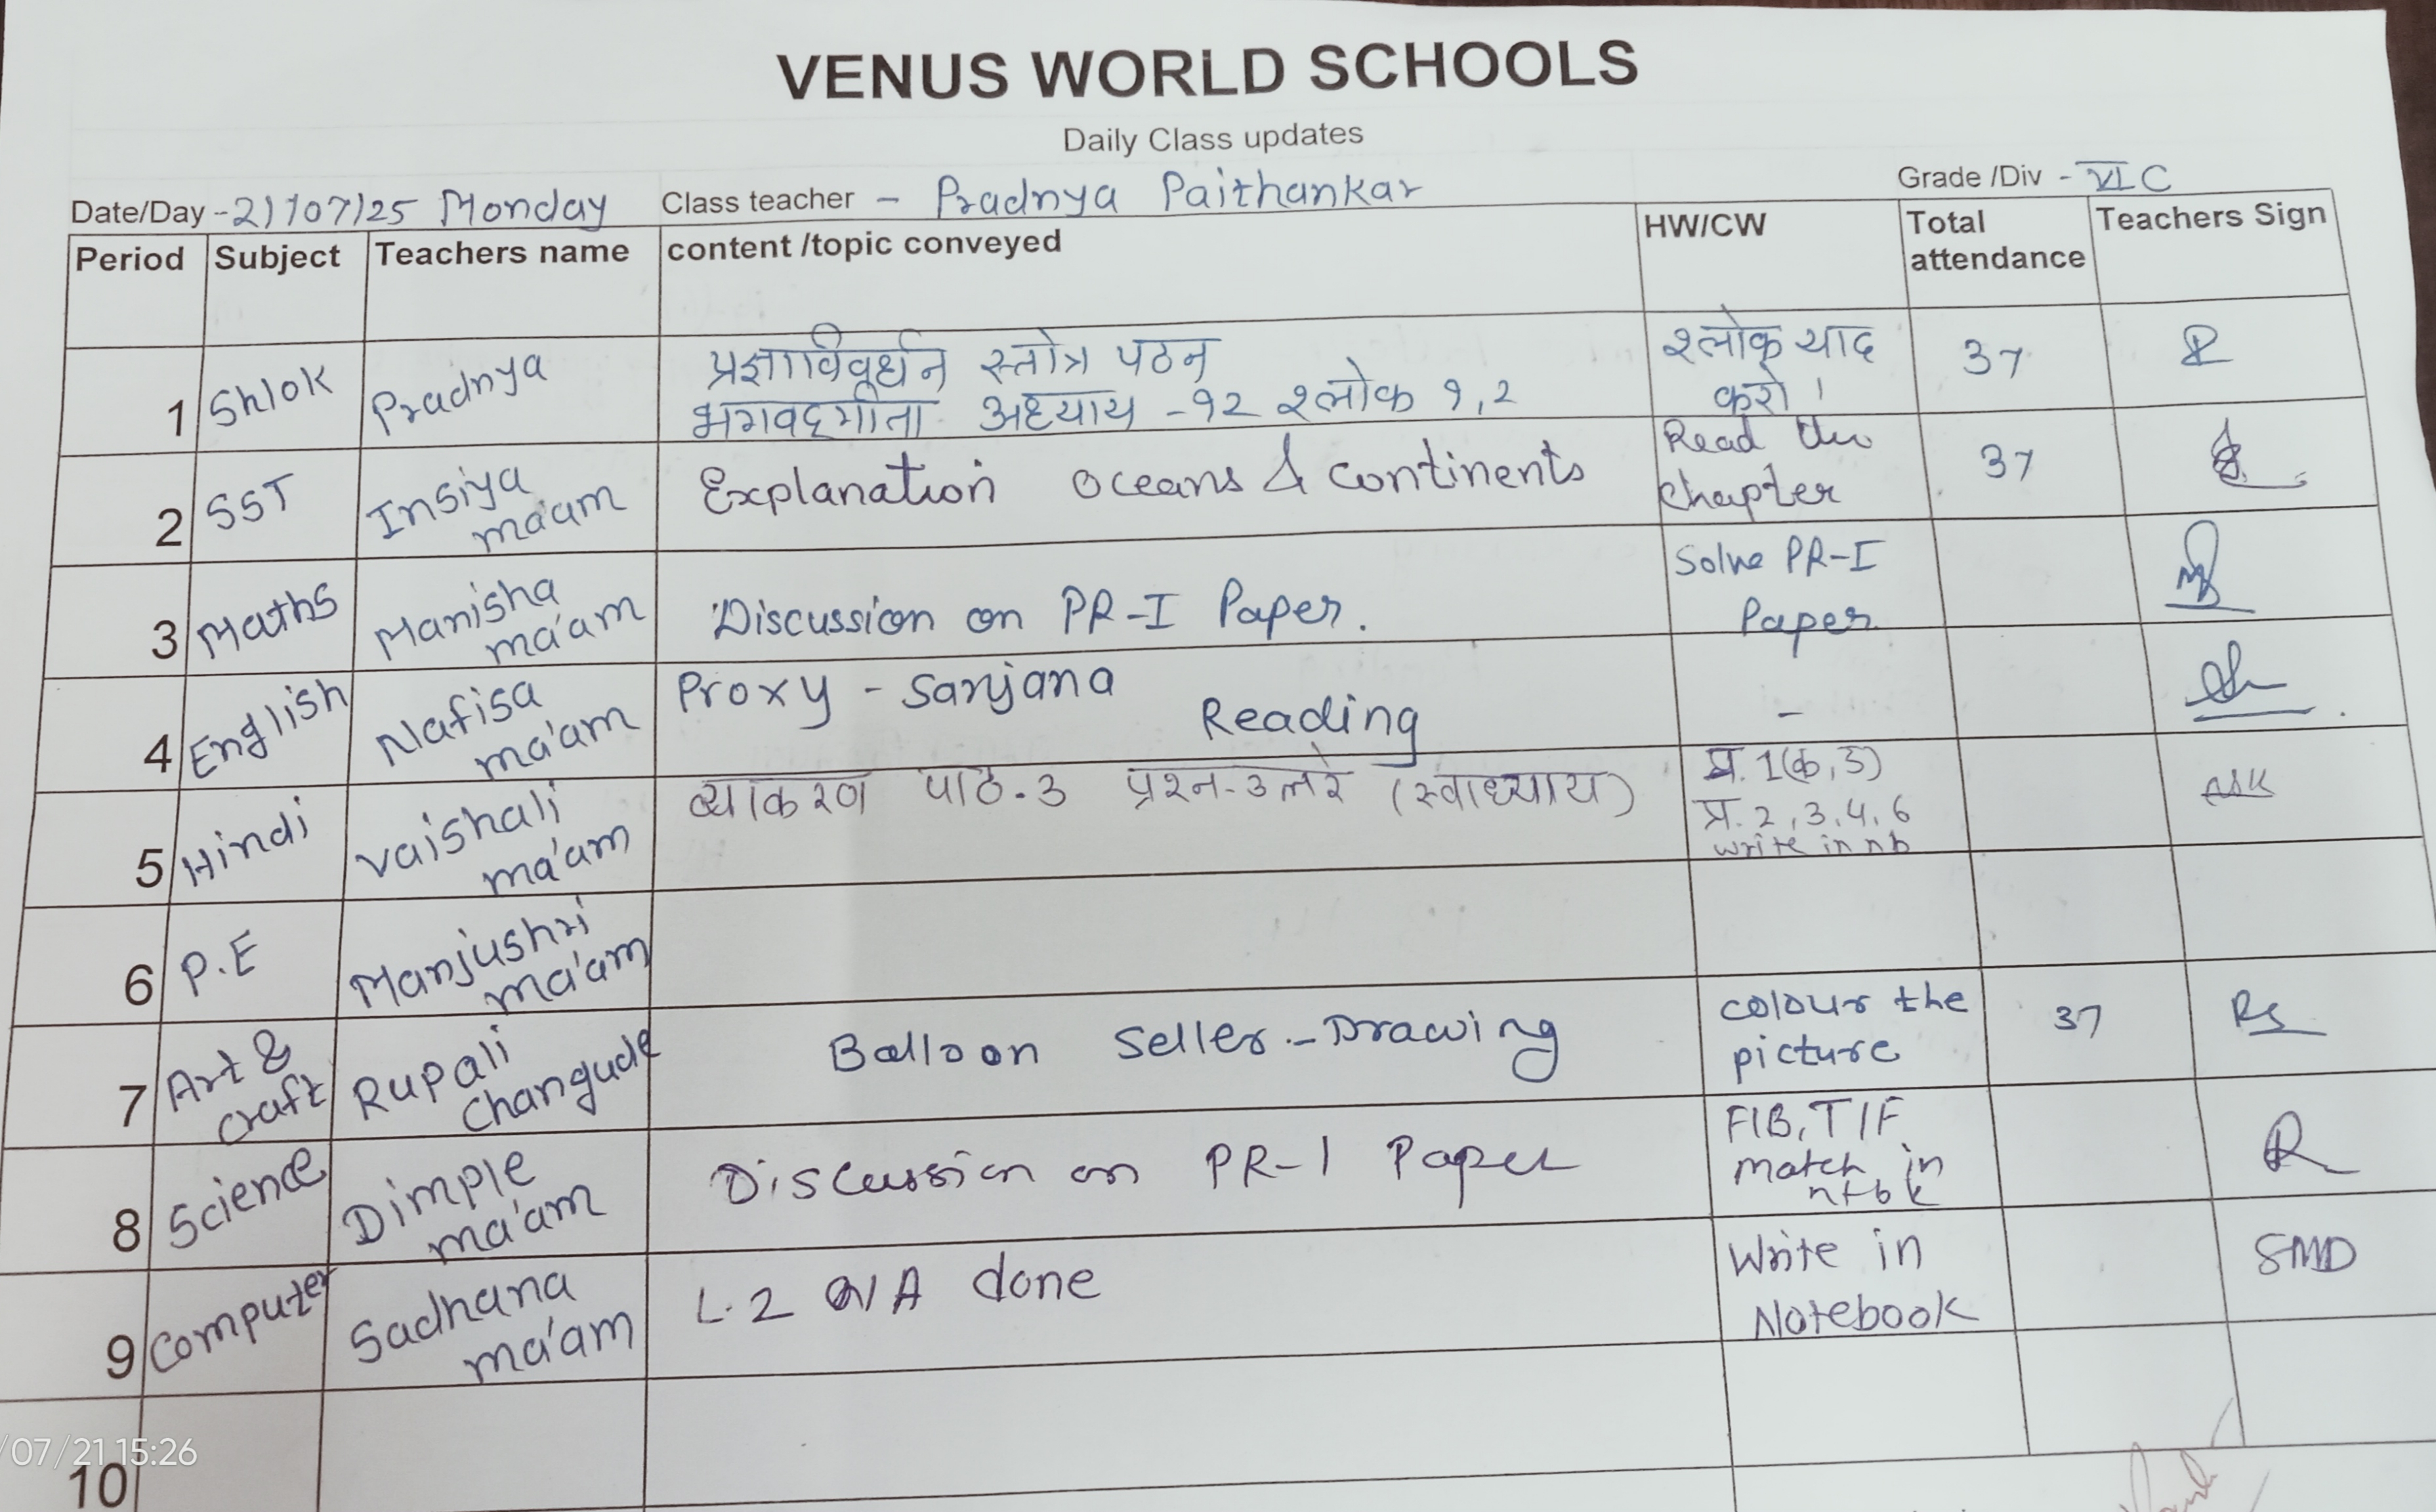 VENUS WORLD SCHOOLS
Daily Class updates
Date/Day - 21/07/25 Monday Class teacher - Pradnya Paithankar Grade /Div - VI C
Period Subject Teachers name content /topic conveyed HW/CW Total attendance Teachers Sign
1 Shlok Pradnya प्रज्ञाविवर्धन स्तोत्र पठन श्लोक याद 37
भगवद्गीता अध्याय -१२ श्लोक १,२ करो।
2 SST Insiya ma'am Explanation oceans & continents Read the chapter 37
3 Maths Manisha ma'am Discussion on PR-I Paper. Solve PR-I Paper
4 English Nafisa ma'am Proxy - Sanjana Reading -
5 Hindi Vaishali ma'am व्याकरण पाठ-3 प्रश्न-उत्तरे (स्वाध्याय) प्र. 1(क,ड)
प्र. 2,3,4,6
write in nb ASK
6 P.E Manjushri ma'am
7 Art & craft Rupali Changude Balloon Seller - Drawing colour the picture 37 Rs
8 Science Dimple ma'am Discussion on PR-1 Paper FIB, T/F match in ntbk R
9 Computer Sadhana ma'am L.2 Q/A done Write in Notebook SMD
10
/07/21 15:26